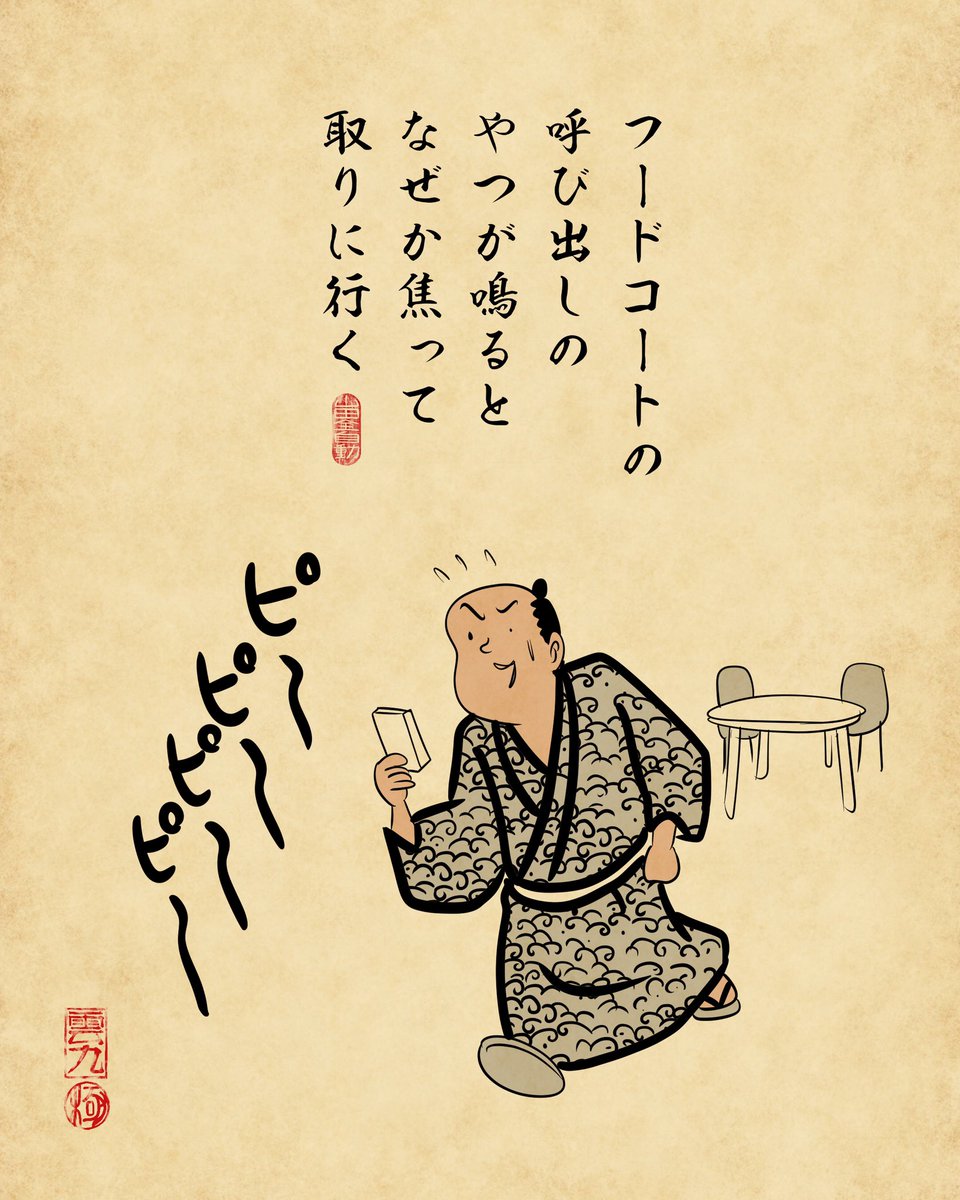 フードコートの
呼び出しの
やつが鳴ると
なぜか焦って
取りに行く
ピ〜
ピピ〜
ピピ〜
ピ〜